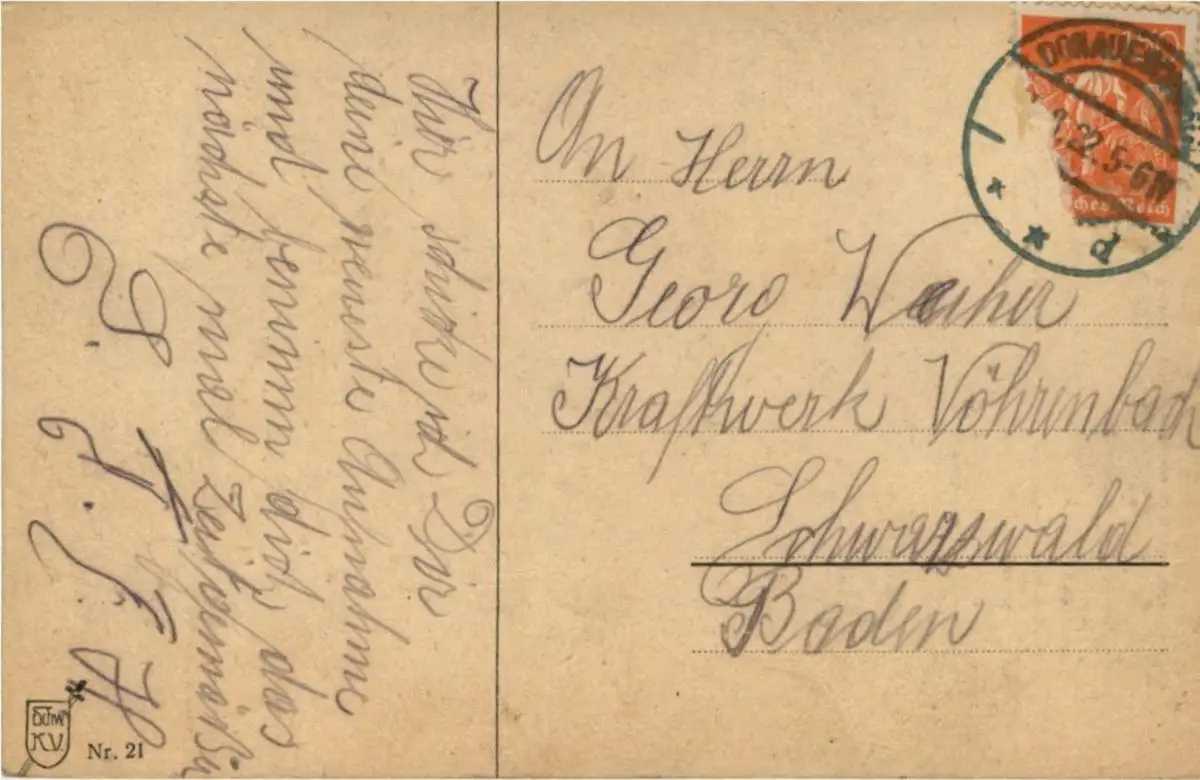 Hir schike ich Dir
deine neueste Aufnahme
und benimm dich das
nächste mal Zeitgemäß
An Herrn
Georg
Kraftwerk Vöhrenbach
Schwarzwald
Baden
DONAUE
22. 5-6N
d
150
ches Reich
K.V.
Nr. 21